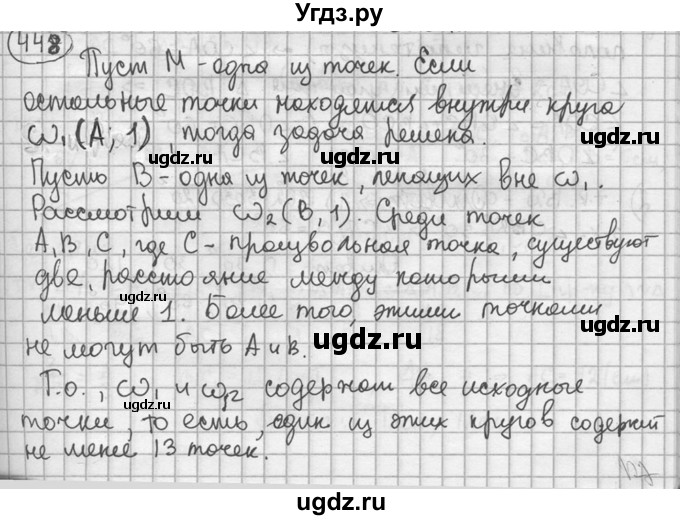 Угдз.ру
448
Пуст М - одна из точек. Если
остальные точки находятся внутри круга
ω₁(A; 1) тогда задача решена.
ugdz.ru ugdz.ru
Пусть В - одна из точек, лежащих вне ω₁.
ugdz.ru
Рассмотрим ω₂(B, 1). Среди точек
А, В, С, где С - произвольная точка, существуют
две, расстояние между которыми
ugdz.ru
меньше 1. Более того, этими точками
ugdz.ru
не могут быть А и В.
ugdz.ru
Т.о., ω₁ и ω₂ содержат все исходные
ugdz.ru
точки, то есть, один из этих кругов содержит
не менее 13 точек.
ugdz.ru
ugdz.ru